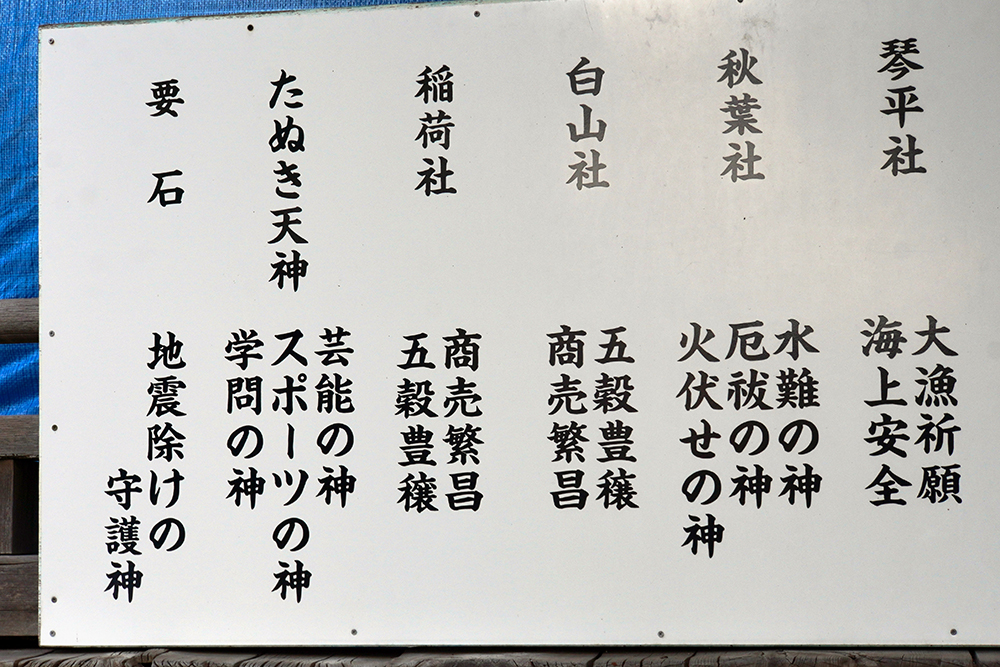 琴平社
大漁祈願
海上安全
秋葉社
水難の神
厄祓の神
火伏せの神
白山社
五穀豊穣
商売繁昌
稲荷社
商売繁昌
五穀豊穣
たぬき天神
芸能の神
スポーツの神
学問の神
要石
地震除けの
守護神